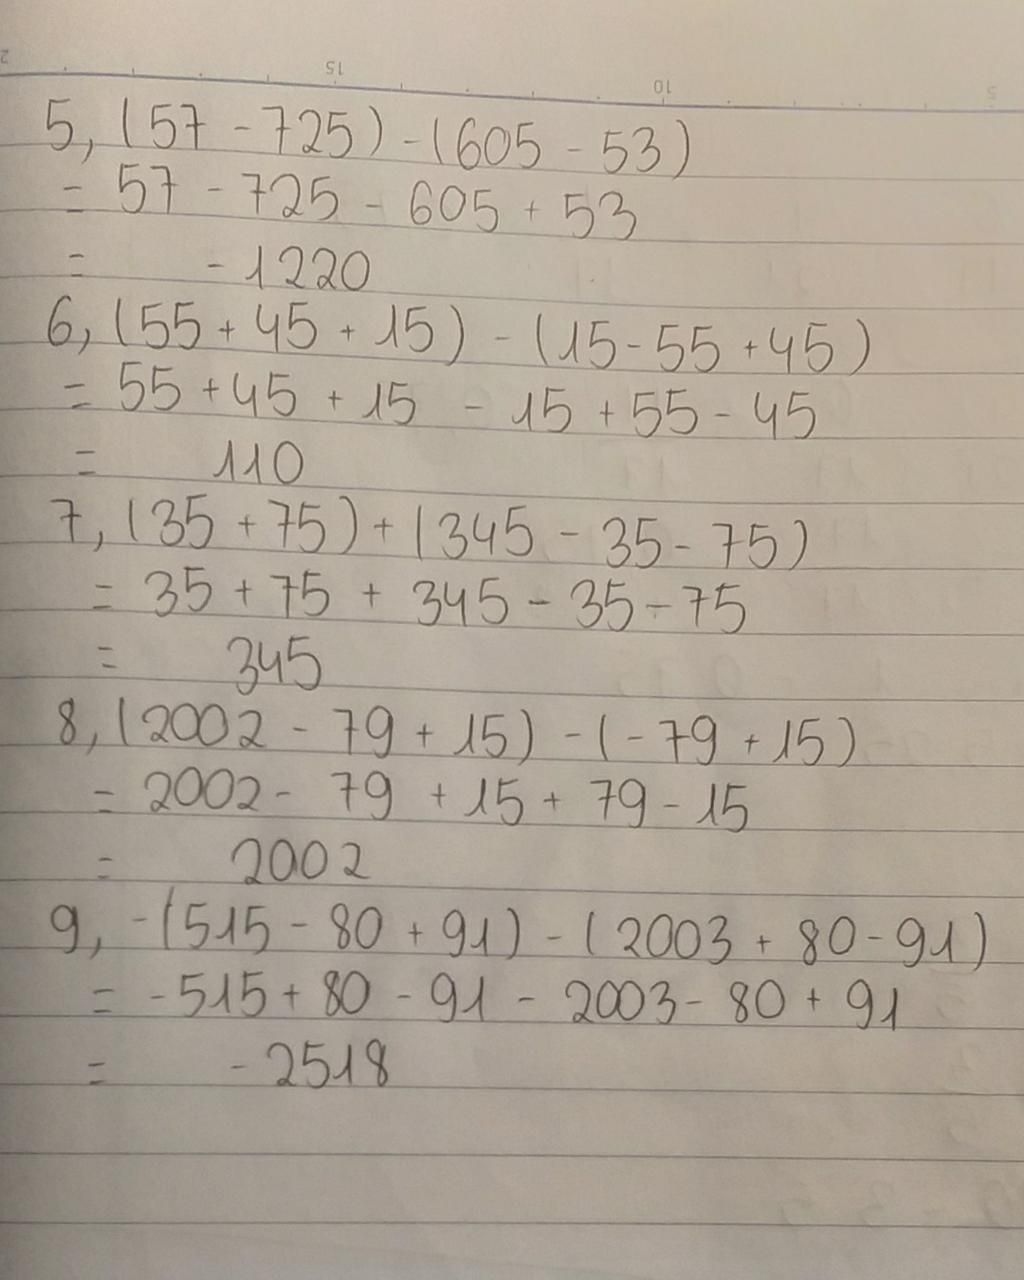 2 15 10 5
5, (57 - 725) - (605 - 53)
= 57 - 725 - 605 + 53
= - 1220
6, (55 + 45 + 15) - (15 - 55 + 45)
= 55 + 45 + 15 - 15 + 55 - 45
= 110
7, (35 + 75) + (345 - 35 - 75)
= 35 + 75 + 345 - 35 - 75
= 345
8, (2002 - 79 + 15) - (- 79 + 15)
= 2002 - 79 + 15 + 79 - 15
= 2002
9, -(515 - 80 + 91) - (2003 + 80 - 91)
= -515 + 80 - 91 - 2003 - 80 + 91
= - 2518